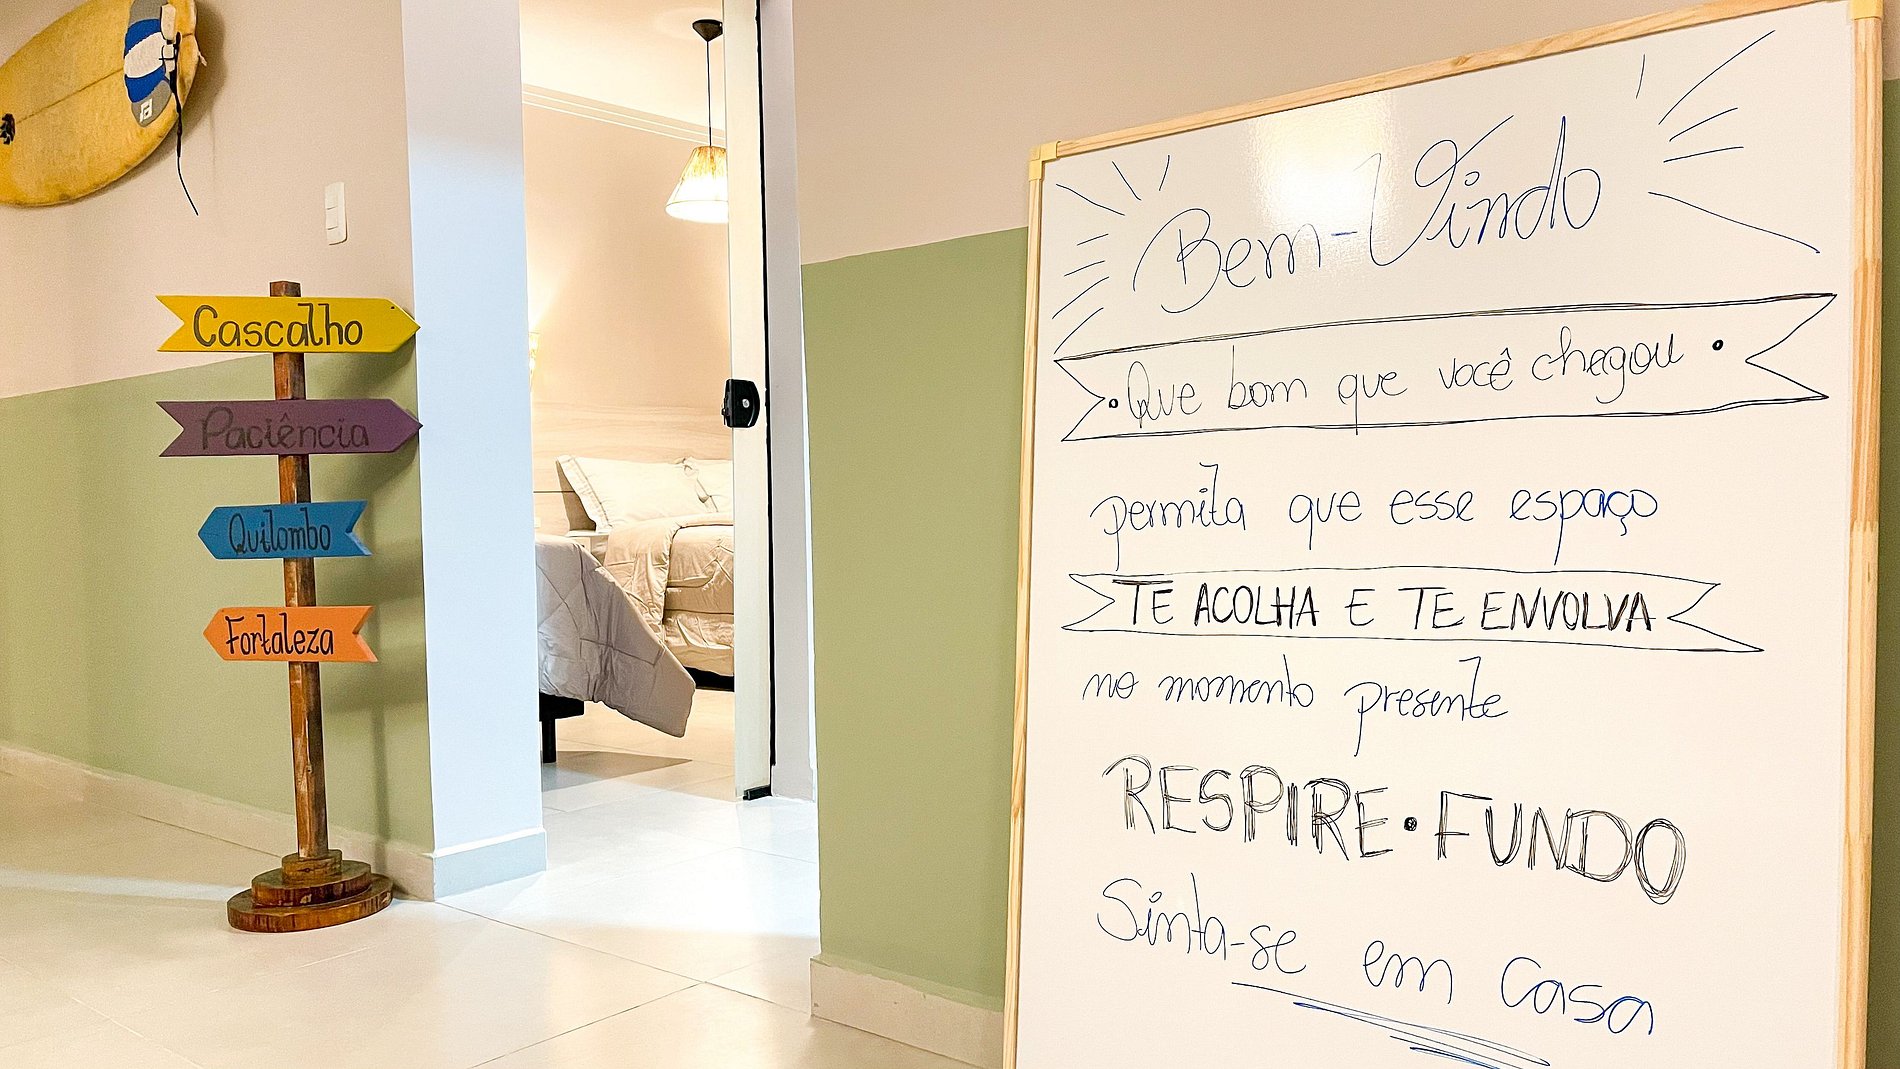 Cascalho
Paciência
Quilombo
Fortaleza
Bem-Vindo
Que bom que você chegou
permita que esse espaço
TE ACOLHA E TE ENVOLVA
no momento presente
RESPIRE • FUNDO
Sinta-se em casa